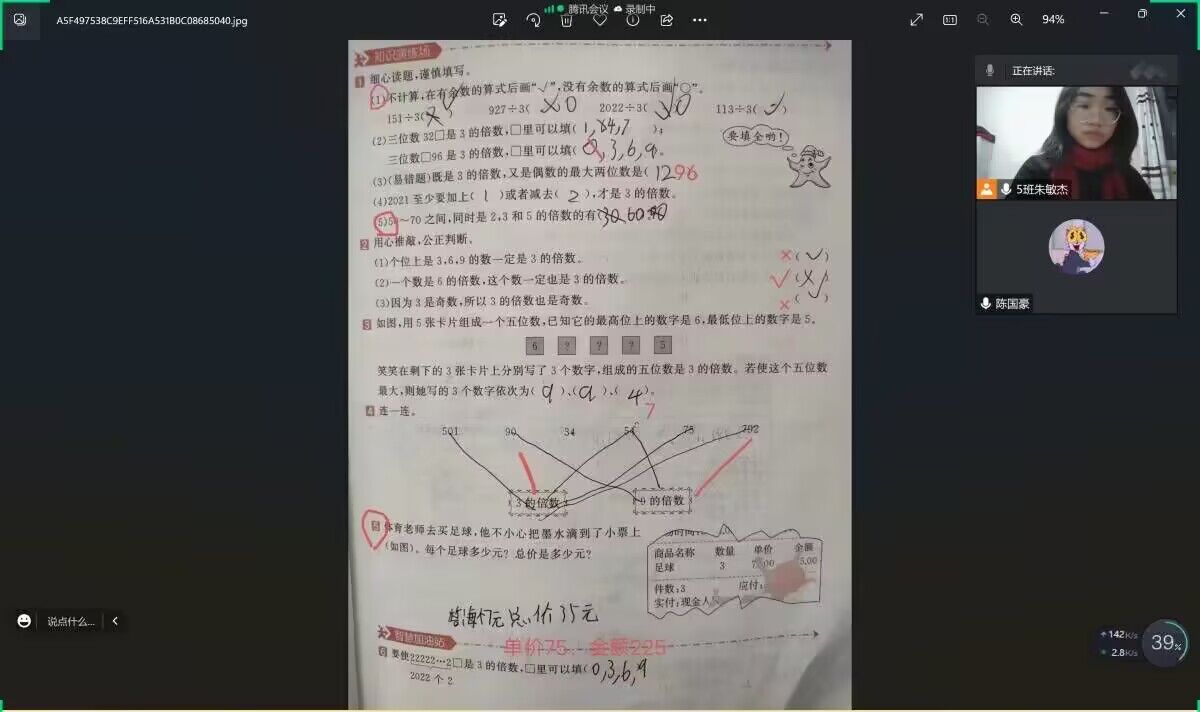 腾讯会议 录制中
A5F497538C9EFF516A531B0C08685040.jpg
94%
正在讲话:
5班朱敏杰
陈国豪
说点什么...
142K/s
2.8K/s
39%
知识演练场
1 细心读题,谨慎填写。
(1)不计算,在有余数的算式后画“√”,没有余数的算式后画“○”。
151÷3( ) 927÷3( ○ ) 2022÷3( ○ ) 113÷3( √ )
(2)三位数 32□是 3 的倍数,□里可以填( 1,4,7 );
三位数□96 是 3 的倍数,□里可以填( 0,3,6,9 。
要填全哟!
(3)(易错题)既是 3 的倍数,又是偶数的最大两位数是( 12 96
(4)2021 至少要加上( 1 )或者减去( 2 ),才是 3 的倍数。
(5)50~70 之间,同时是 2,3 和 5 的倍数的有 30,60,90
2 用心推敲,公正判断。
(1)个位上是 3,6,9 的数一定是 3 的倍数。 × ( √ )
(2)一个数是 6 的倍数,这个数一定也是 3 的倍数。 √ ( × )
(3)因为 3 是奇数,所以 3 的倍数也是奇数。 × ( √ )
3 如图,用 5 张卡片组成一个五位数,已知它的最高位上的数字是 6,最低位上的数字是 5。
6 ? ? ? 5
笑笑在剩下的 3 张卡片上分别写了 3 个数字,组成的五位数是 3 的倍数。若使这个五位数
最大,则她写的 3 个数字依次为( 9 )、( 9 )、( 4 )。
7
4 连一连。
501 90 34 54 75 792
3 的倍数 9 的倍数
5 体育老师去买足球,他不小心把墨水滴到了小票上
(如图)。每个足球多少元?总价是多少元?
商品名称 数量 单价 金额
足球 3 7 .00 5.00
件数:3 应付:
实付:现金人民
每个7元 总价35元
智慧加油站
单价75, 金额225
6 要使22222…2□是 3 的倍数,□里可以填( 0,3,6,9
2022 个 2